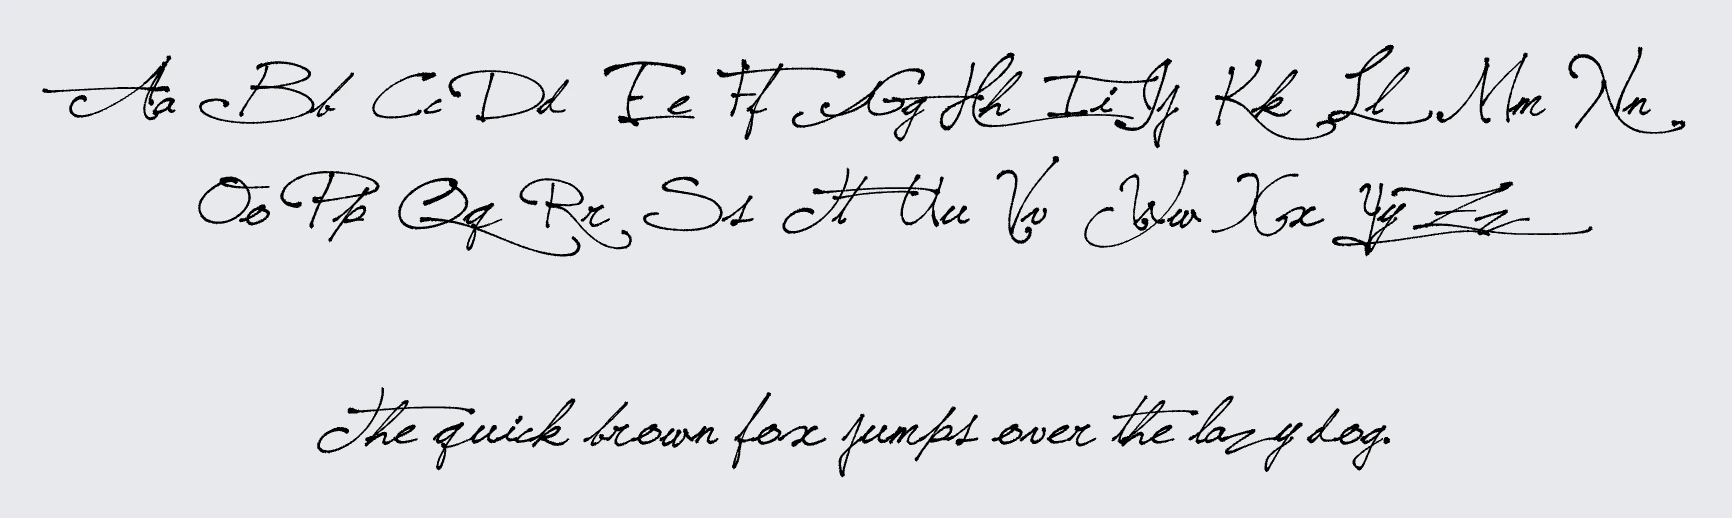 Aa Bb Cc Dd Ee Ff Gg Hh Ii Jj Kk Ll Mm Nn
Oo Pp Qq Rr Ss Tt Uu Vv Ww Xx Yy Zz
The quick brown fox jumps over the lazy dog.